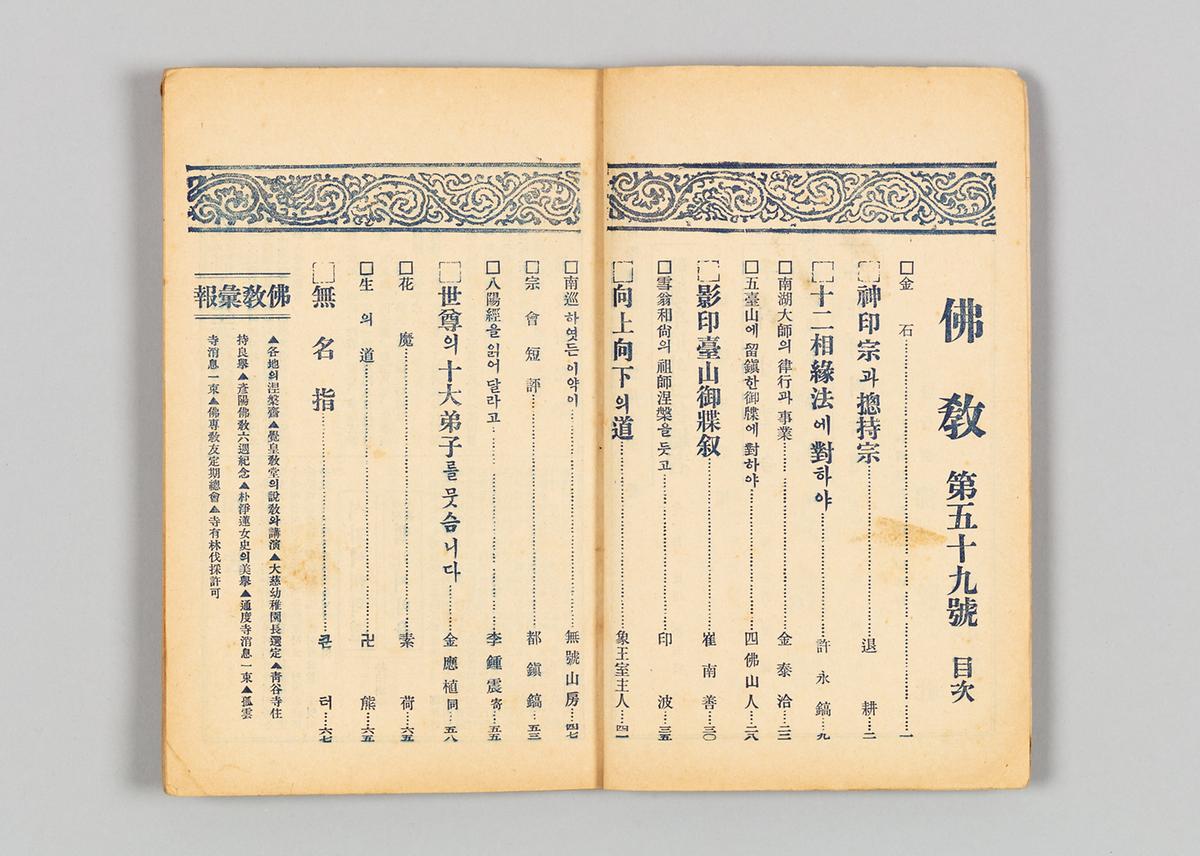 佛敎 第五十九號 目次
□金石……一
□神印宗과摠持宗……退耕……二
□十二相緣法에對하야……許永鎬……九
□南湖大師의律行과事業……金泰洽……二二
□五臺山에留鎭한御牒에對하야……四佛山人……二八
□影印臺山御牒叙……崔南善……三〇
□雪翁和尙의祖師涅槃을듯고……印波……三五
□向上向下의道……象王室主人……四一
□南巡하엿든이약이……無號山房……四七
□宗會短評……都鎭鎬……五三
□八陽經을읽어달라고……李鍾震寄……五五
□世尊의十大弟子를뭇슴니다……金應植同……五八
□花魔……素荷……六五
□生의道……卍熊……六五
□無名指……큰터……六七
佛敎彙報
▲各地의涅槃齋▲覺皇敎堂의說敎와講演▲大慈幼稚園長選定▲靑谷寺住
持良擧▲彥陽佛敎六週紀念▲朴淨蓮女史의美擧▲通度寺消息一束▲孤雲
寺消息一束▲佛專敎友定期總會▲寺有林伐採許可